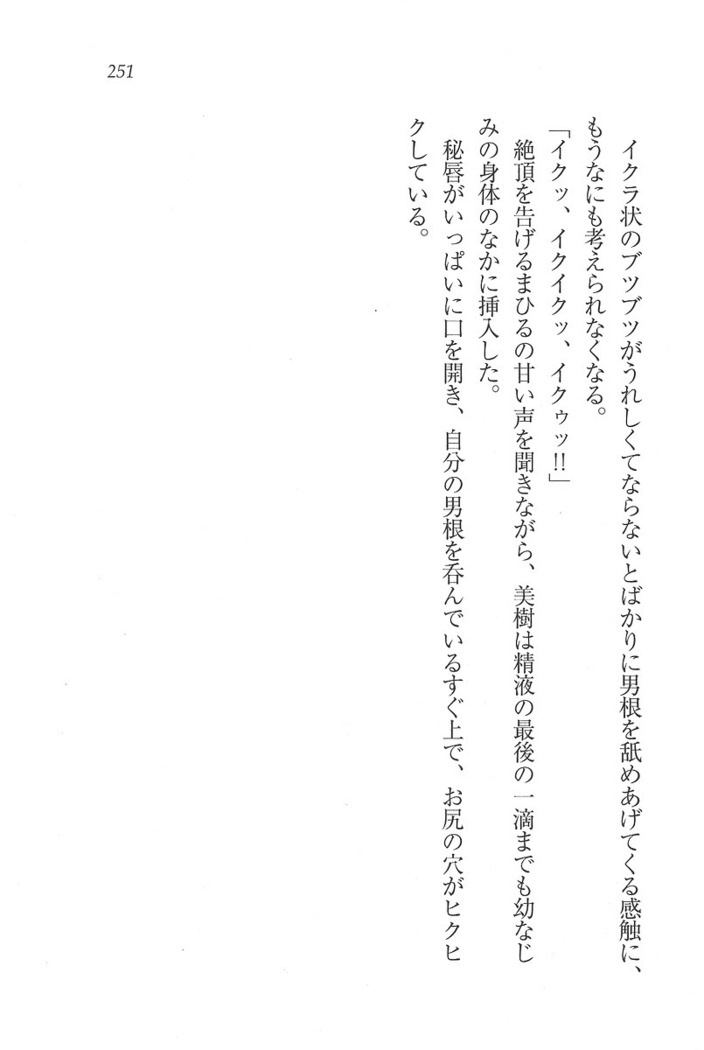 251
イクラ状のブツブツがうれしくてならないとばかりに男根を舐めあげてくる感触に、
もうなにも考えられなくなる。
「イクッ、イクイクッ、イクゥッ!!」
絶頂を告げるまひるの甘い声を聞きながら、美樹は精液の最後の一滴までも幼なじ
みの身体のなかに挿入した。
秘唇がいっぱいに口を開き、自分の男根を呑んでいるすぐ上で、お尻の穴がヒクヒ
クしている。